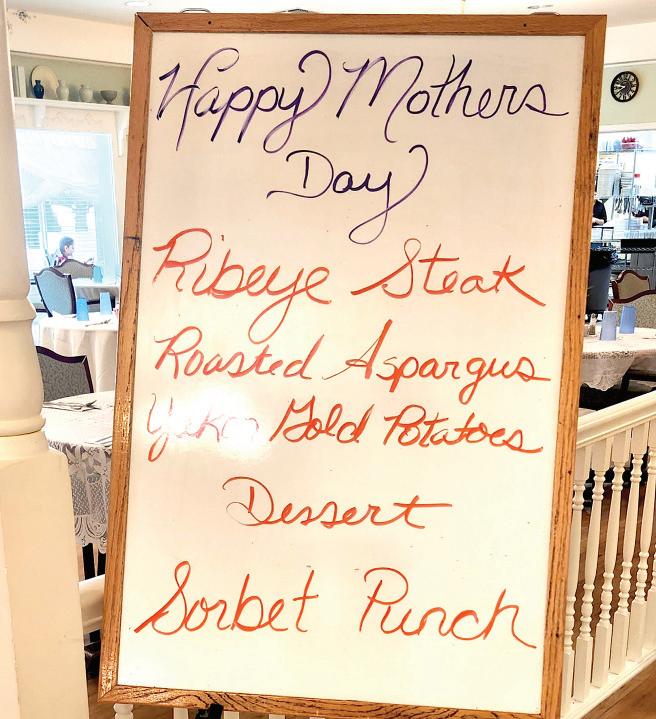 Happy Mothers
Day
Ribeye Steak
Roasted Aspargus
Yukon Gold Potatoes
Dessert
Sorbet Punch